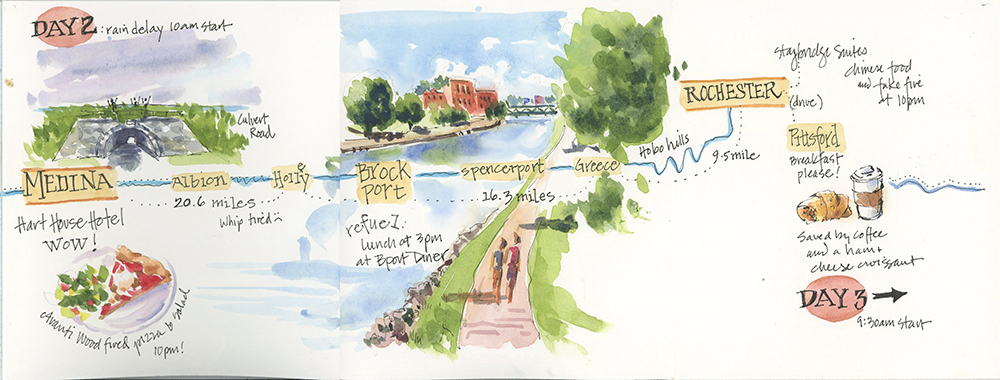 DAY 2 : rain delay 10am start
Culvert
Road
MEDINA
Albion
Holly
20.6 miles
whip tired
Hart House Hotel
WOW!
Avanti Wood fired pizza & salad
10pm!
Brock
port
spencerport
Greece
16.3 miles
refuel.
lunch at 3pm
at Bport Diner
Hobo hills
9.5 mile
ROCHESTER
(drive)
Staybridge Suites
Chinese food
and fake fire
at 10pm
Pittsford
Breakfast
please!
Saved by coffee
and a ham &
cheese croissant
DAY 3
9:30am start